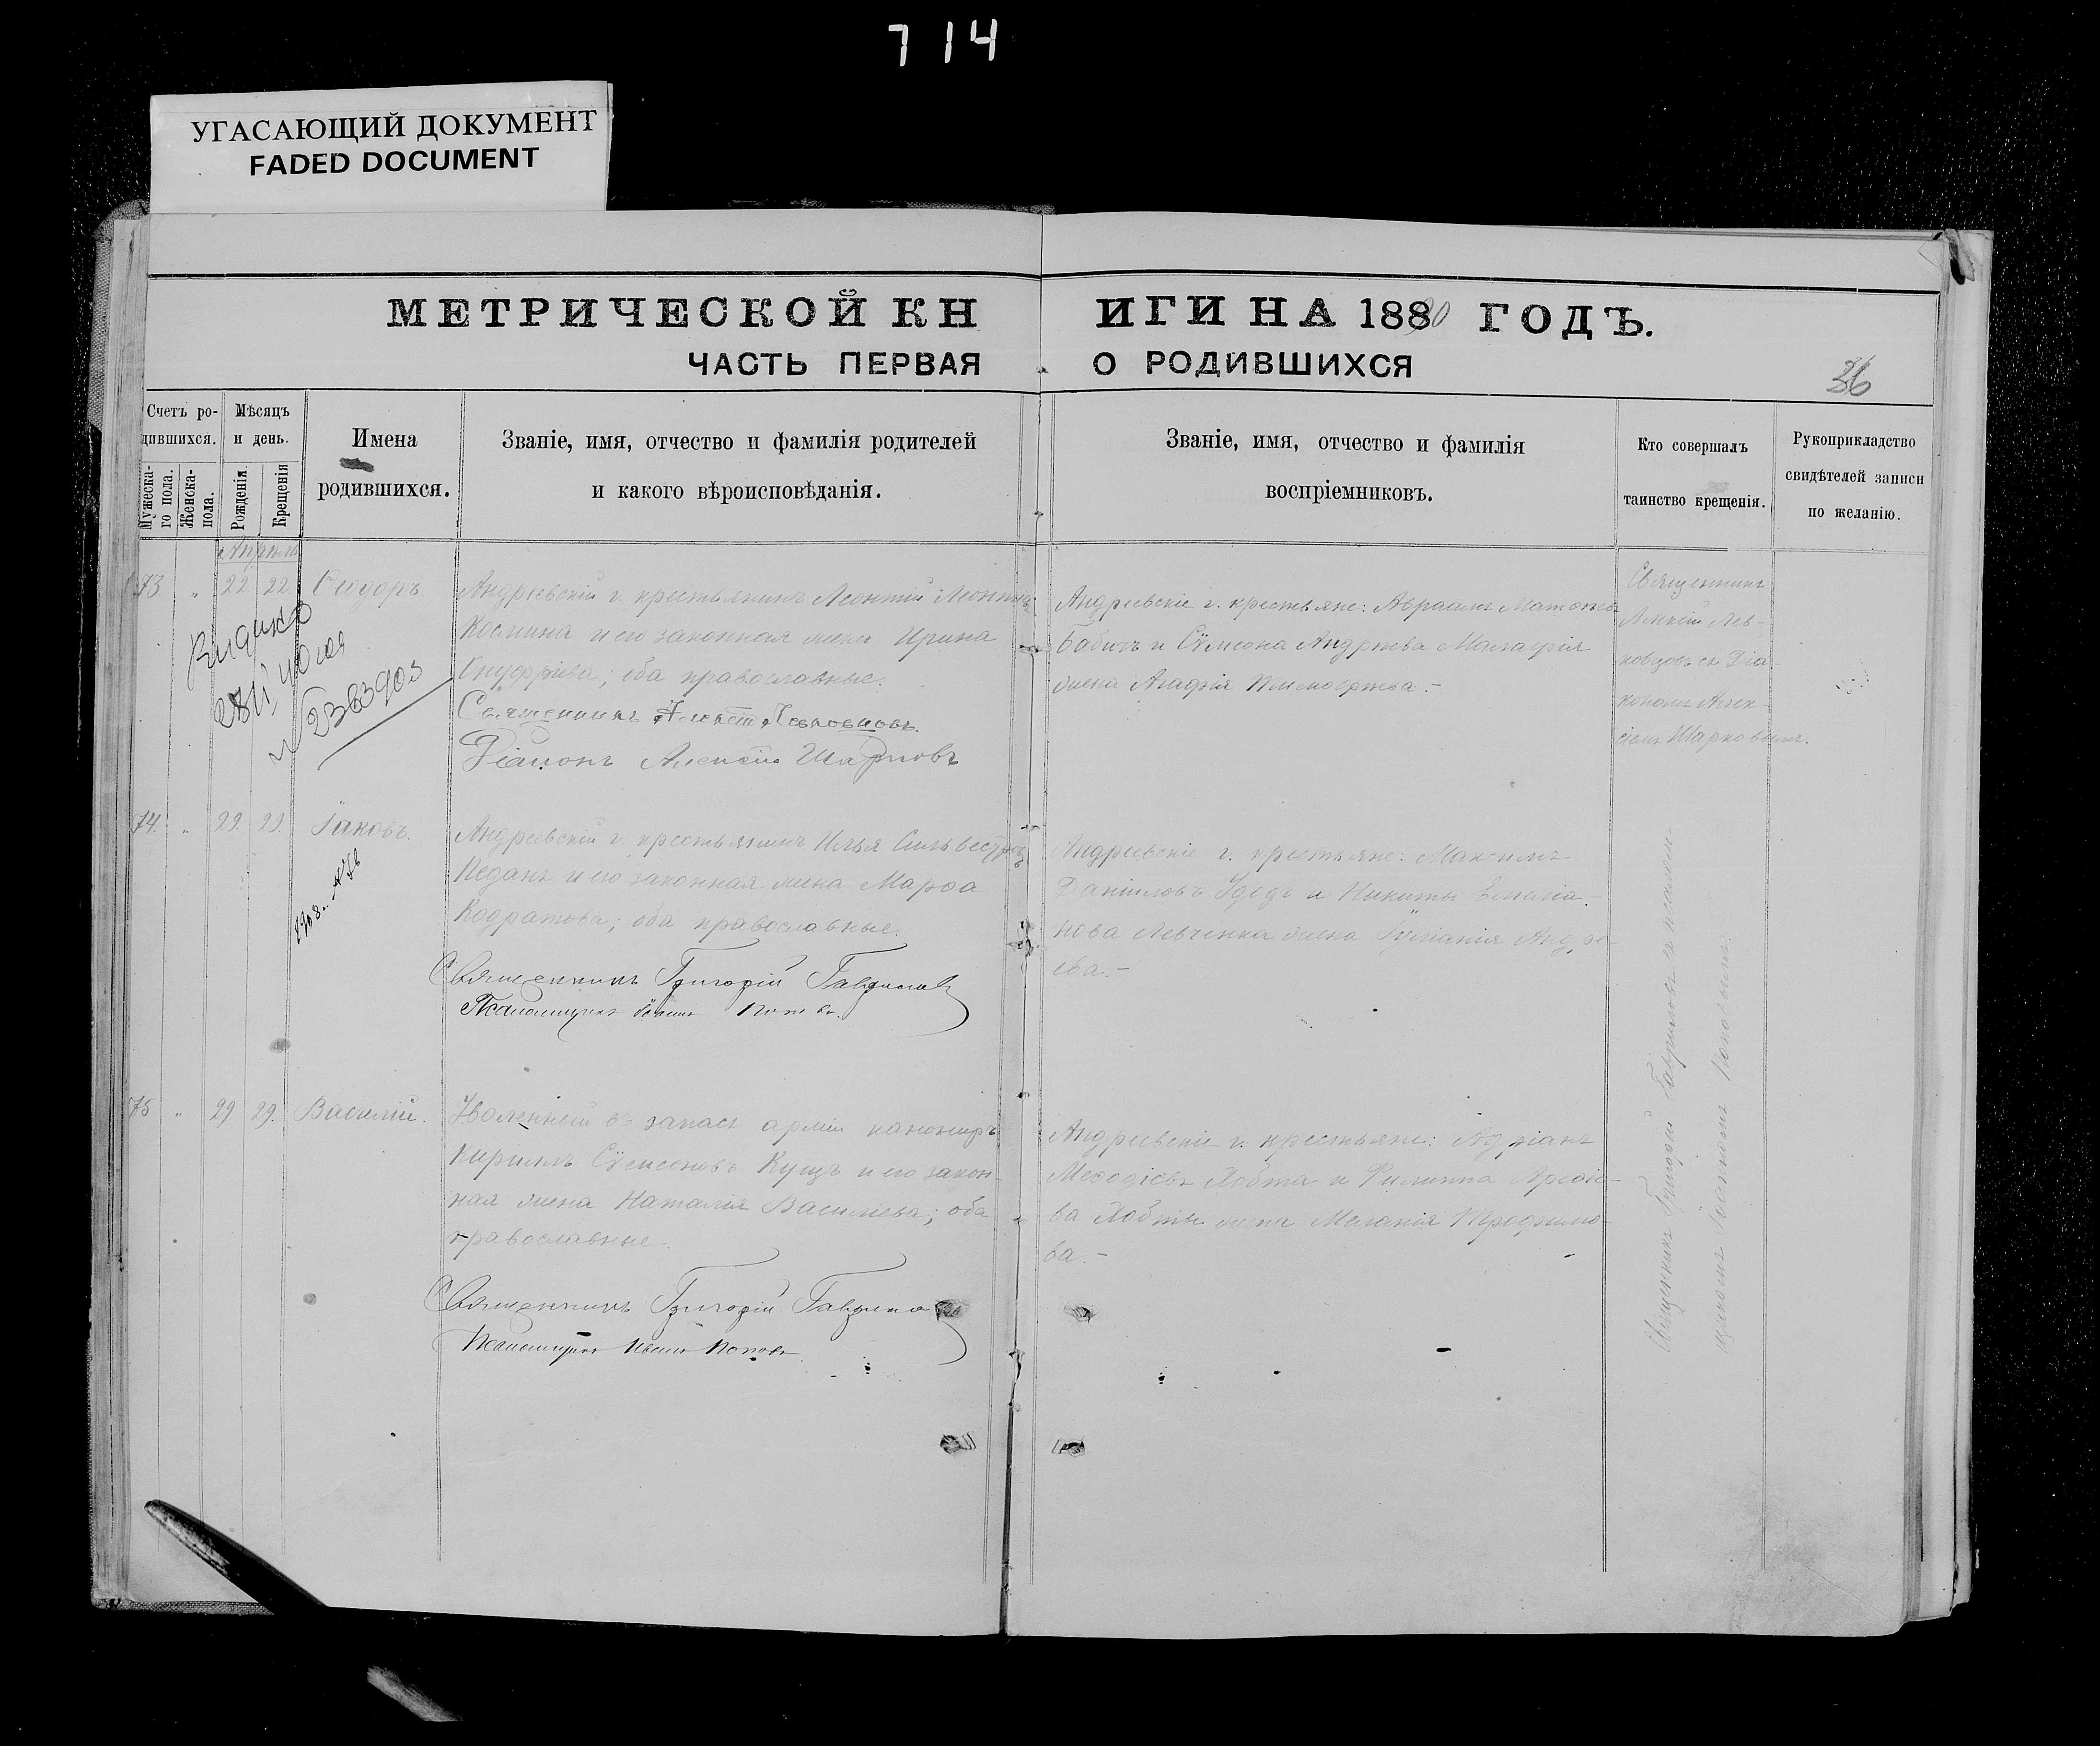 714
УГАСАЮЩИЙ ДОКУМЕНТ
FADED DOCUMENT
МЕТРИЧЕСКОЙ КНИГИ НА 1890 ГОДЪ.
ЧАСТЬ ПЕРВАЯ О РОДИВШИХСЯ
36
Счетъ ро-
дившихся.
Мужеска-
го пола.
Женска-
пола.
Мѣсяцъ
и день.
Рожденія.
Крещенія
Имена
родившихся.
Званіе, имя, отчество и фамилія родителей
и какого вѣроисповѣданія.
Званіе, имя, отчество и фамилія
воспріемниковъ.
Кто совершалъ
таинство крещенія.
Рукоприкладство
свидѣтелей записи
по желанію.
Апрель
73 " 22 22 Ѳеодоръ
Андреевскій г. крестьянинъ Леонтій
Космина и его законная жена Ирина
Онуфріева; оба православные.
Священникъ Алексій Левковцовъ.
Діаконъ Алексій Шарковъ
Андреевскіе г. крестьяне: Авраамъ
Бабичъ и Сѵмеона Андреева
жена Агафія
Священникъ
Алексій Лев-
ковцовъ съ Діа-
кономъ Алек-
сіемъ Шарковымъ.
74. " 29. 29. Іаковъ.
Андреевскій г. крестьянинъ Илья
Педанъ и его законная жена Марѳа
Кодратова; оба православные.
Священникъ Григорій Гавриловъ
Псаломщикъ Поповъ.
Андреевскіе г. крестьяне: Максимъ
Даніиловъ Удодъ и Никиты Емеліа-
нова Левченка жена Іуліанія Андре-
ева.-
75 " 29 29. Василій.
Уволенный въ запасъ арміи канониръ
Кириллъ Сѵмеоновъ Куцъ и его закон-
ная жена Наталія Василіева; оба
православные.
Священникъ Григорій Гаврилов
Псаломщикъ Иванъ Поповъ
Андреевскіе г. крестьяне: Адріанъ
Меѳодіевъ Лобта и Филиппа
ва Лобты жена Меланія Трофимо-
ва.-
Священникъ Григорій Гавриловъ съ псалом-
щикомъ Іоанномъ Поповымъ.